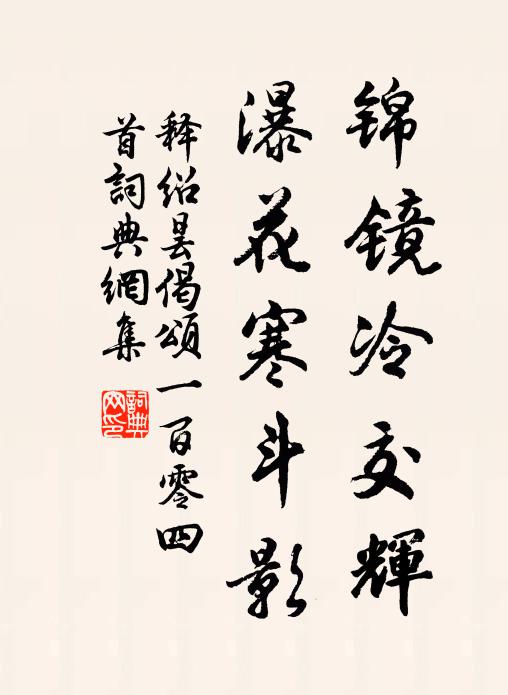 锦镜冷交輝
瀑花寒斗影
释绍昙偈頌一百零四
首詞典網集
詞典网印